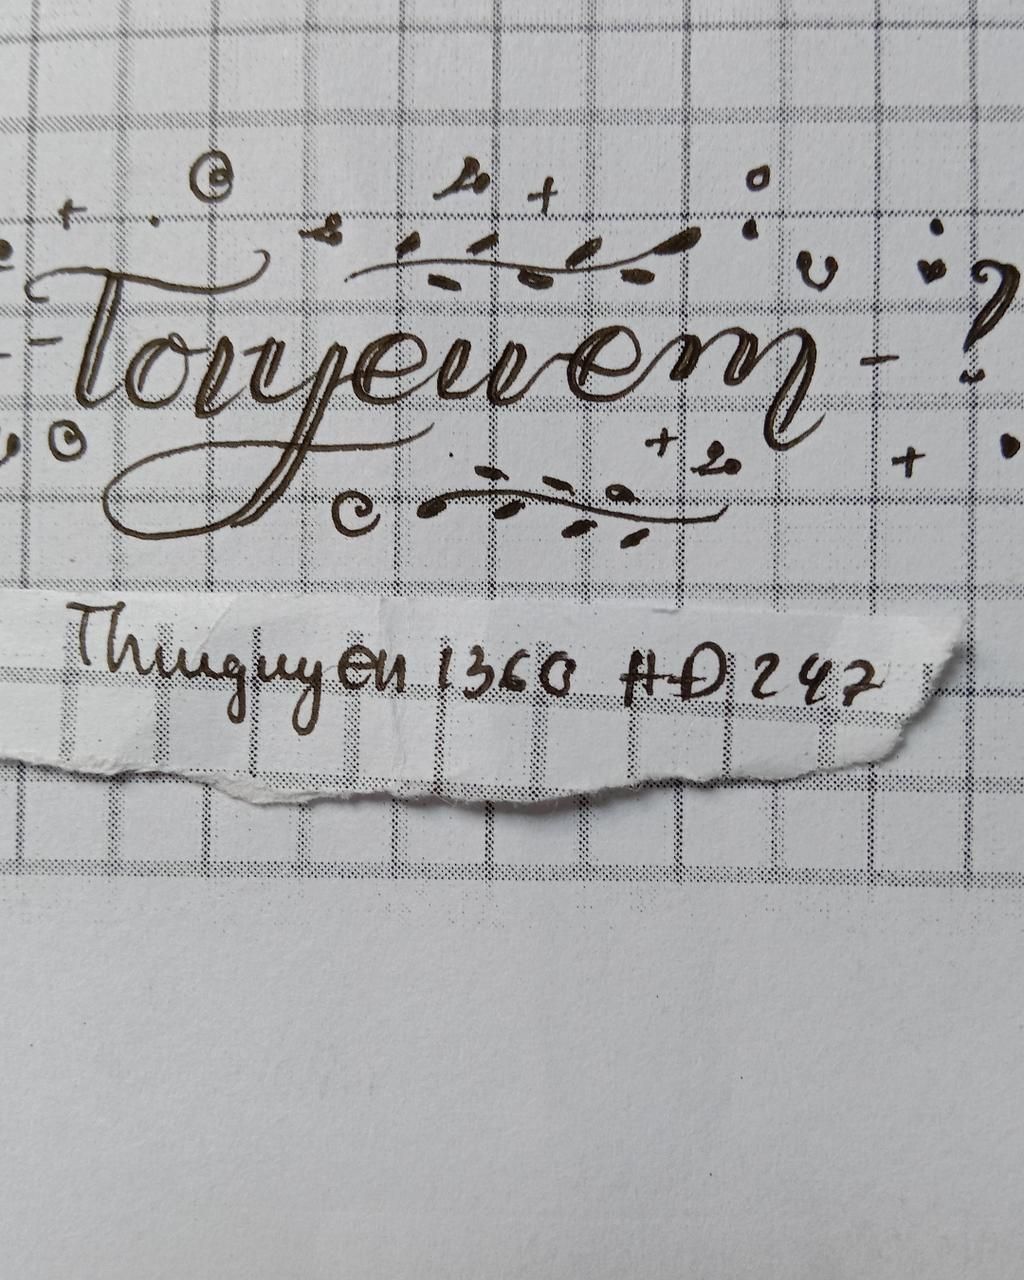 - Touyeuem - ?
Thuuguyen 1360 HĐ 247